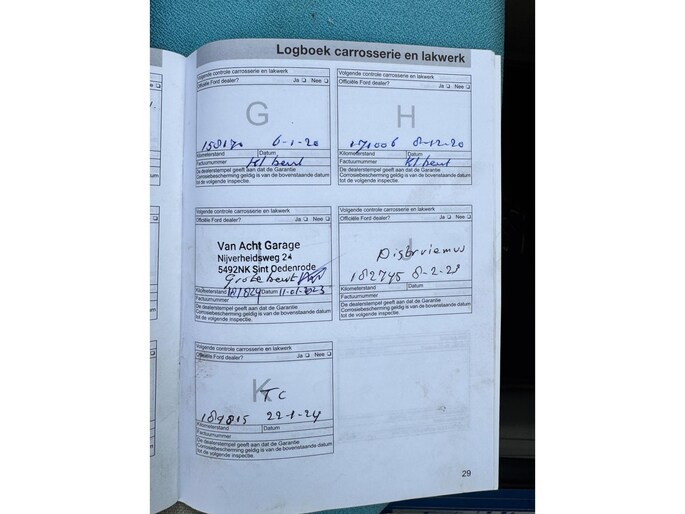 Logboek carrosserie en lakwerk
Volgende controle carrosserie en lakwerk
Officiële Ford dealer? Ja Nee
G
158170 6-1-20
Kilometerstand Datum
Factuurnummer Kl beurt
De dealerstempel geeft aan dat de Garantie
Corrosiebescherming geldig is van de bovenstaande datum
tot de volgende inspectie.
Volgende controle carrosserie en lakwerk
Officiële Ford dealer? Ja Nee
H
171006 8-12-20
Kilometerstand Datum
Factuurnummer Kl beurt
De dealerstempel geeft aan dat de Garantie
Corrosiebescherming geldig is van de bovenstaande datum
tot de volgende inspectie.
Volgende controle carrosserie en lakwerk
Officiële Ford dealer? Ja Nee
Van Acht Garage
Nijverheidsweg 24
5492NK Sint Oedenrode
Grote beurt
Kilometerstand Datum 11-01-2023
Factuurnummer
De dealerstempel geeft aan dat de Garantie
Corrosiebescherming geldig is van de bovenstaande datum
tot de volgende inspectie.
Volgende controle carrosserie en lakwerk
Officiële Ford dealer? Ja Nee
182745 8-2-23
Kilometerstand Datum
Factuurnummer
De dealerstempel geeft aan dat de Garantie
Corrosiebescherming geldig is van de bovenstaande datum
tot de volgende inspectie.
Volgende controle carrosserie en lakwerk
Officiële Ford dealer? Ja Nee
K
TC
189815 22-1-24
Kilometerstand Datum
Factuurnummer
De dealerstempel geeft aan dat de Garantie
Corrosiebescherming geldig is van de bovenstaande datum
tot de volgende inspectie.
29